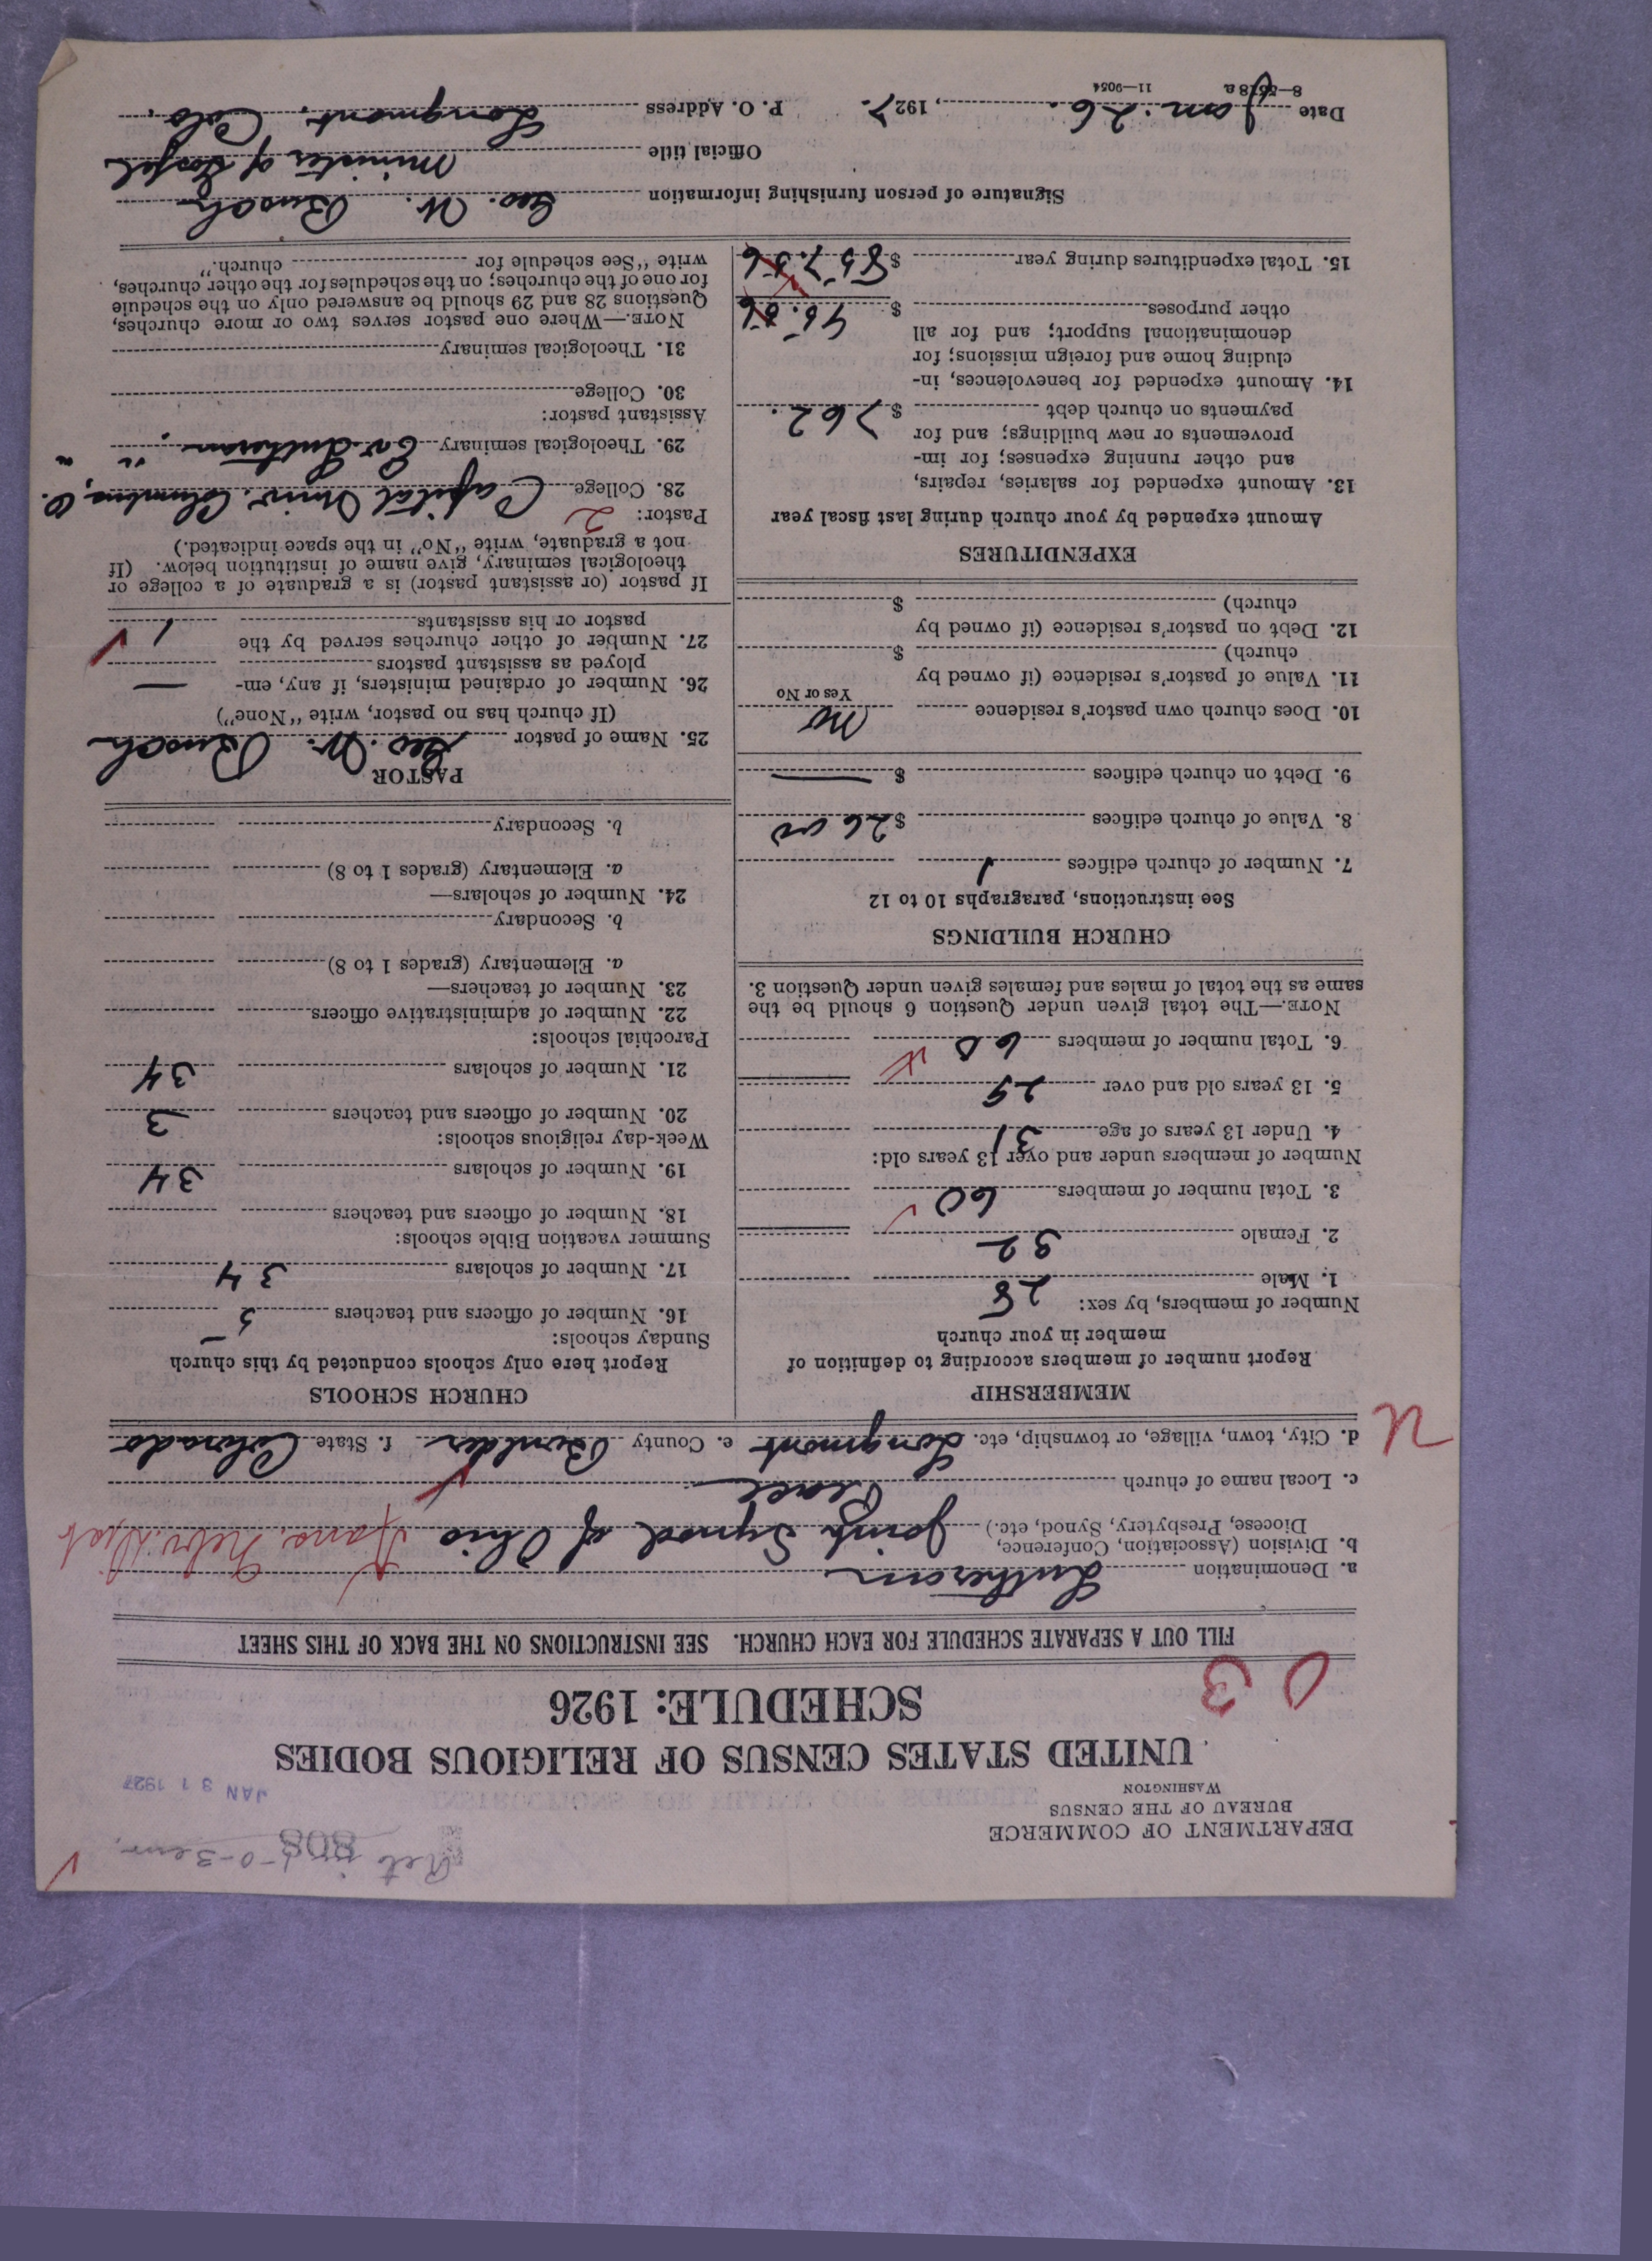 DEPARTMENT OF COMMERCE
BUREAU OF THE CENSUS
WASHINGTON
808
JAN 31 1927
UNITED STATES CENSUS OF RELIGIOUS BODIES
SCHEDULE: 1926
03
FILL OUT A SEPARATE SCHEDULE FOR EACH CHURCH. SEE INSTRUCTIONS ON THE BACK OF THIS SHEET
a. Denomination Lutheran
b. Division (Association, Conference, Diocese, Presbytery, Synod, etc.) Joint Synod of Ohio Kans. Nebr. Dist
c. Local name of church Peace
d. City, town, village, or township, etc. Longmont e. County Boulder f. State Colorado
U
MEMBERSHIP
Report number of members according to definition of
member in your church
Number of members, by sex:
1. Male 28
2. Female 32
3. Total number of members 60
Number of members under and over 13 years old:
4. Under 13 years of age 31
5. 13 years old and over 29
6. Total number of members 60
NOTE.—The total given under Question 6 should be the
same as the total of males and females given under Question 3.
CHURCH BUILDINGS
See instructions, paragraphs 10 to 12
7. Number of church edifices 1
8. Value of church edifices $2600
9. Debt on church edifices $ —
10. Does church own pastor's residence No
Yes or No
11. Value of pastor's residence (if owned by
church) $
12. Debt on pastor's residence (if owned by
church) $
EXPENDITURES
Amount expended by your church during last fiscal year
13. Amount expended for salaries, repairs,
and other running expenses; for im-
provements or new buildings; and for
payments on church debt $762.
14. Amount expended for benevolences, in-
cluding home and foreign missions; for
denominational support; and for all
other purposes $95.56
15. Total expenditures during year $857.56
CHURCH SCHOOLS
Report here only schools conducted by this church
Sunday schools:
16. Number of officers and teachers 5
17. Number of scholars 34
Summer vacation Bible schools:
18. Number of officers and teachers
19. Number of scholars 34
Week-day religious schools:
20. Number of officers and teachers 3
21. Number of scholars 34
Parochial schools:
22. Number of administrative officers
23. Number of teachers—
a. Elementary (grades 1 to 8)
b. Secondary
24. Number of scholars—
a. Elementary (grades 1 to 8)
b. Secondary
PASTOR
25. Name of pastor Geo. W. Busch
(If church has no pastor, write "None")
26. Number of ordained ministers, if any, em-
ployed as assistant pastors —
27. Number of other churches served by the
pastor or his assistants 1
If pastor (or assistant pastor) is a graduate of a college or
theological seminary, give name of institution below. (If
not a graduate, write "No" in the space indicated.)
Pastor: 2
28. College Capital Univ. Columbus, O.
29. Theological seminary Ev. Lutheran " "
Assistant pastor:
30. College
31. Theological seminary
NOTE.—Where one pastor serves two or more churches,
Questions 28 and 29 should be answered only on the schedule
for one of the churches; on the schedules for the other churches,
write "See schedule for church."
Signature of person furnishing information Geo. W. Busch
Official title Minister of Gospel
Date Jan. 26., 1927. P. O. Address Longmont, Colo.
8—5578 a 11—9054